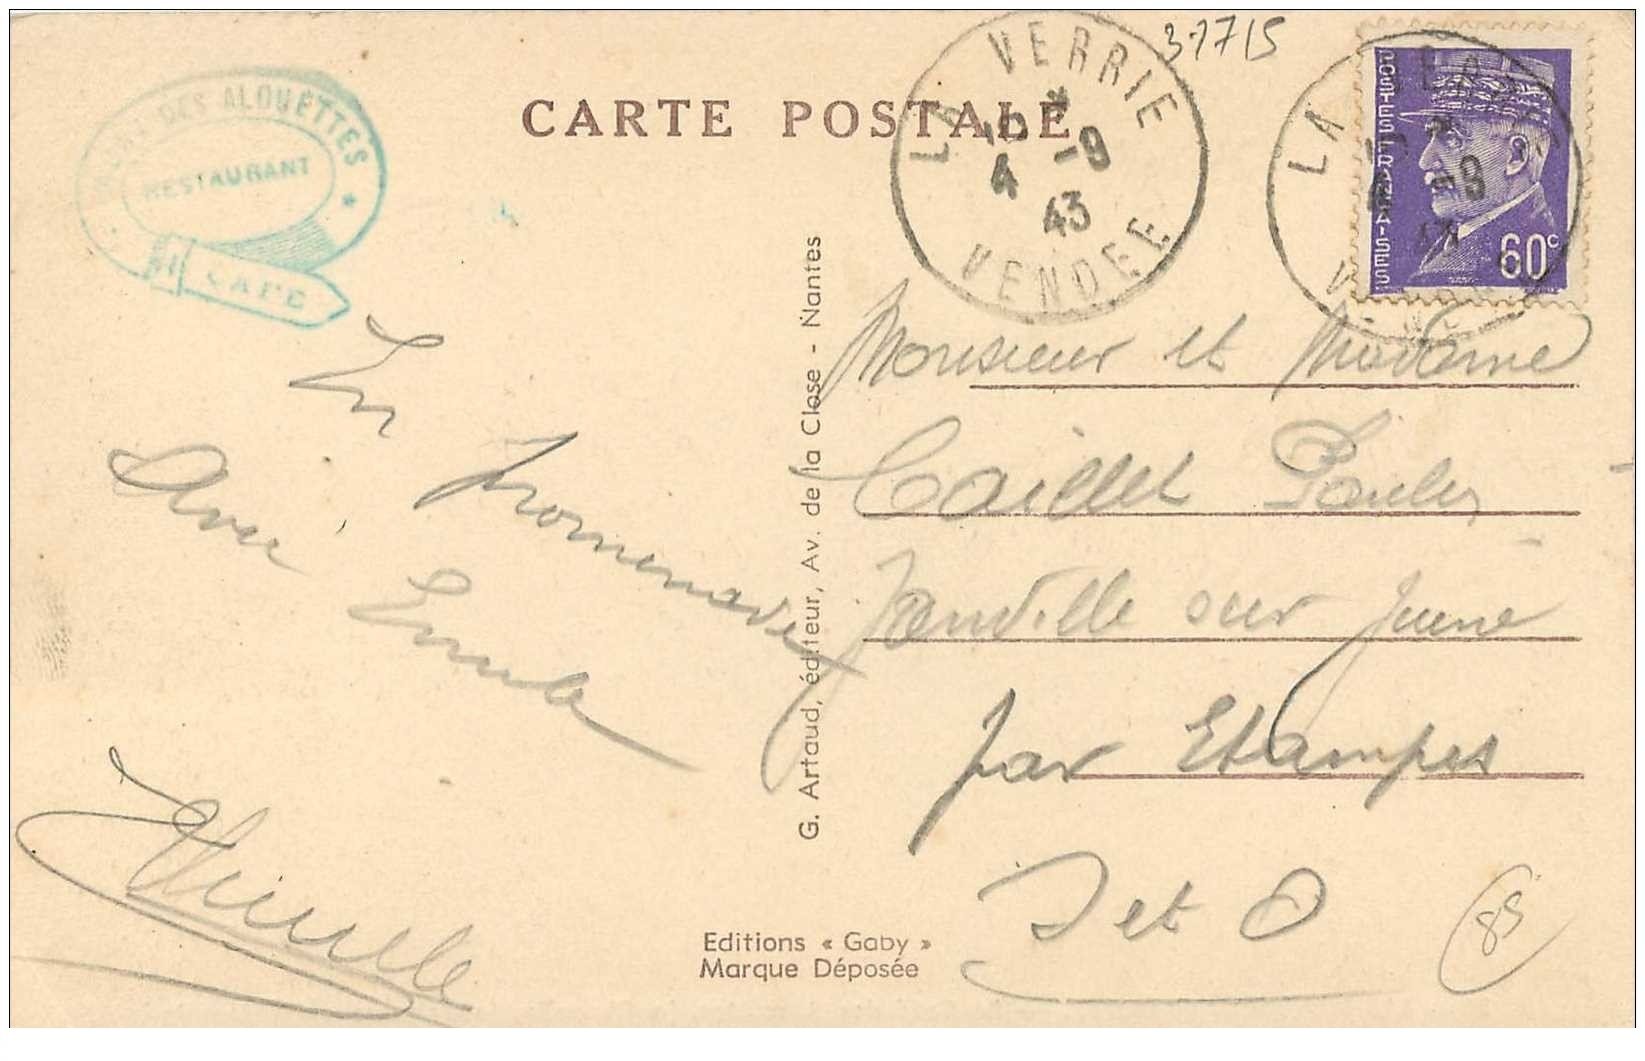 CARTE POSTALE
DES ALOUETTES
RESTAURANT
CAFE
LA VERRIE
15
4 -9
43
VENDEE
37715
LA VERRIE
4 -9
43
POSTES FRANÇAISES
60c
En
promenade
Avec
Emile
G. Artaud, éditeur, Av. de la Close - Nantes
Monsieur et Madame
Caillet
Janville sur Juine
par Etampes
S et O
Editions « Gaby »
Marque Déposée
85